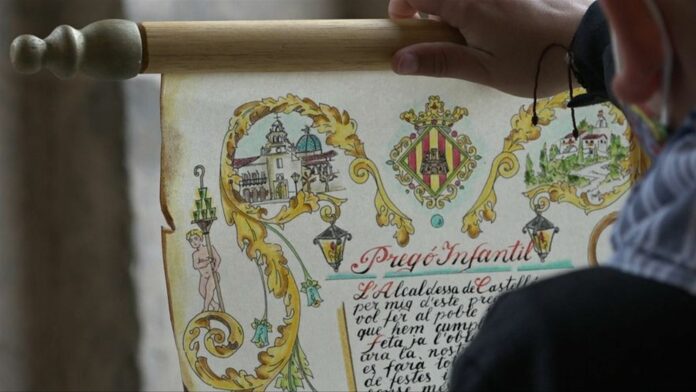 Pregó Infantil
L'Alcaldessa de Castell
per mig d'este preg
vol fer al poble
que hem cump
Feta ja l'obl
ara la nost
es farà to
de festes i